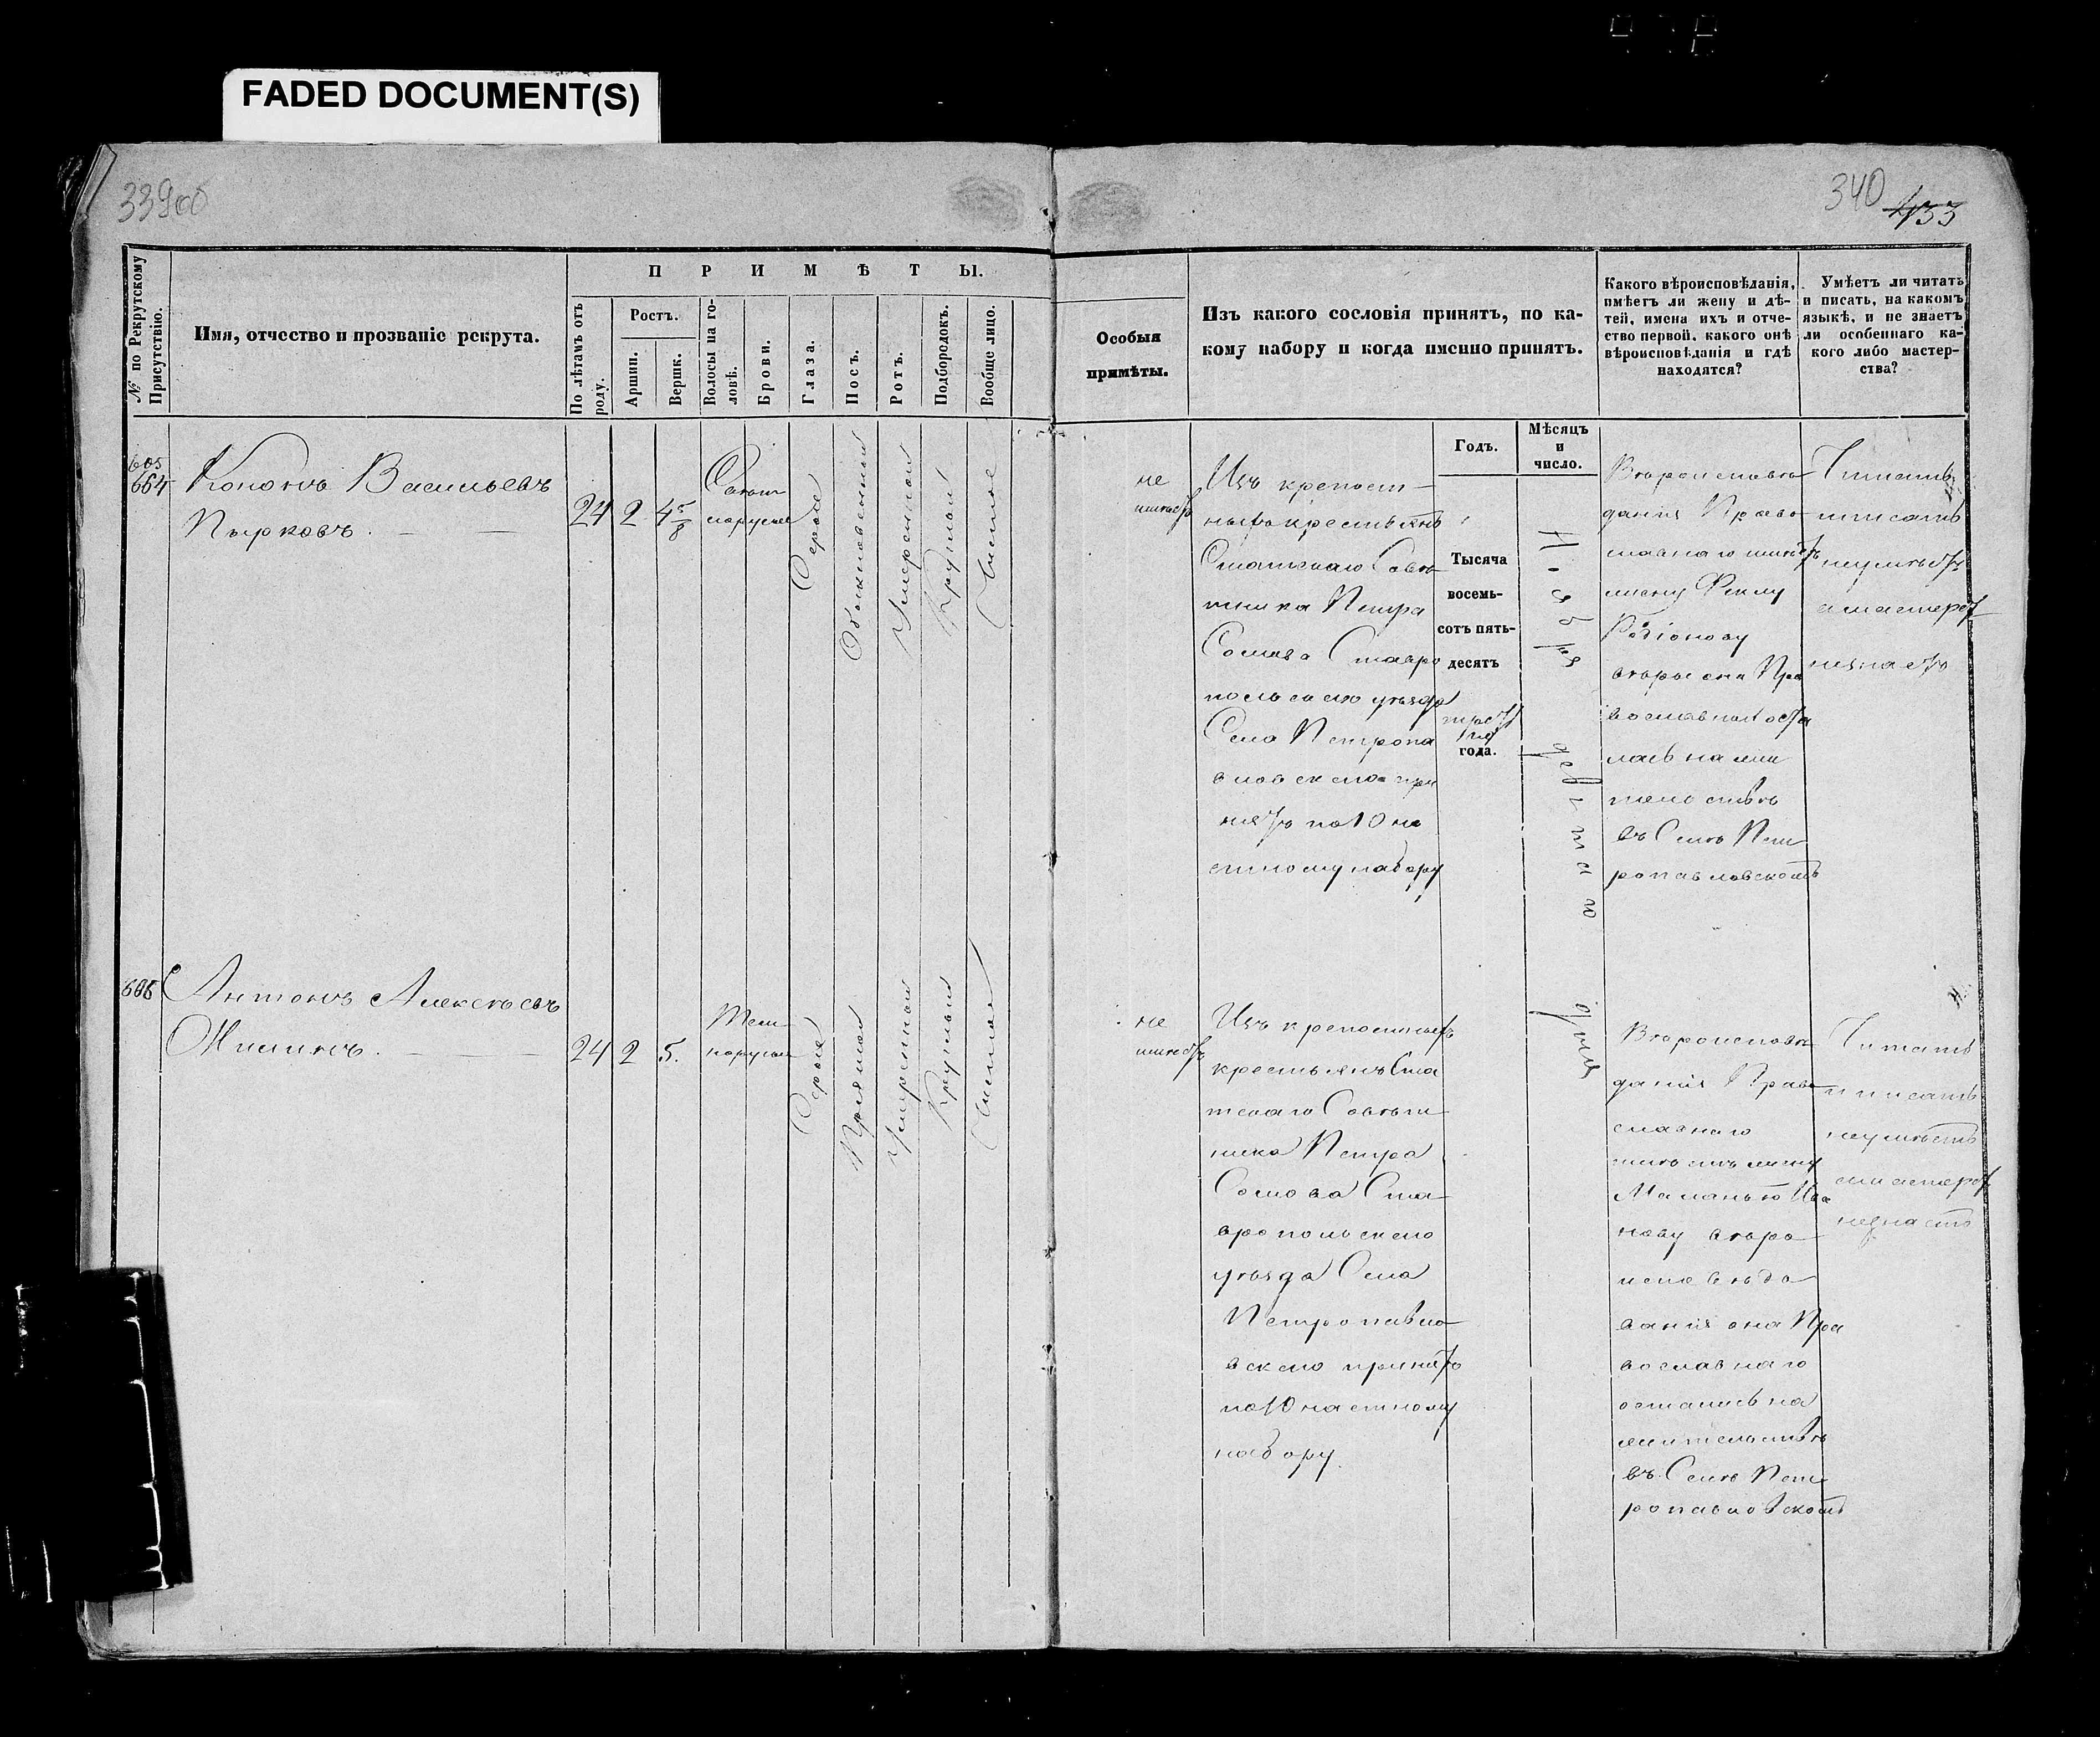 FADED DOCUMENT(S)
339об
340
433
№ по Рекрутскому Присутствію.
Имя, отчество и прозваніе рекрута.
ПРИМѢТЫ.
По лѣтамъ отъ роду.
Ростъ.
Аршин.
Вершк.
Волосы на головѣ.
Брови.
Глаза.
Носъ.
Ротъ.
Подбородокъ.
Вообще лицо.
Особыя
примѣты.
Изъ какого сословія принятъ, по ка-
кому набору и когда именно принятъ.
Какого вѣроисповѣданія,
имѣетъ ли жену и дѣ-
тей, имена ихъ и отче-
ство первой, какого онѣ
вѣроисповѣданія и гдѣ
находятся?
Умѣетъ ли читать
и писать, на какомъ
языкѣ, и не знаетъ
ли особеннаго ка-
кого либо мастер-
ства?
Годъ.
Мѣсяцъ
и
число.
605
664
Кононъ Васильевъ
Пырковъ.
24
2
4 5/8
Свѣтло
русые
Серые
Обыкновенный
Умеренной
Круглый
Чистое
не
имеетъ
Изъ крепост-
ныхъ крестьянъ
Статскаго Совѣ
тника Петра
Сомова Ставро
польскаго уѣзда
Села Петропа
вловскаго при
нятъ по 10 ча
стному набору
Тысяча
восемь-
сотъ пять-
десятъ
третьяго
года.
Ноября
девятаго
дня
Вѣроисповѣ
данія Право
славнаго имеетъ
жену Феклу
Родіонову
вѣры она Пра
вославной оста
лась на жи
тельствѣ
въ Селѣ Пет
ропавловскомъ
Читать
и писать
неумѣетъ
и мастерст
незнаетъ
606
Антонъ Алексѣевъ
Жилинъ.
24
2
5.
Темно
русые
Серые
Прямой
Умеренной
Круглый
Чистое
не
имеетъ
Изъ крепостныхъ
крестьянъ Ста
тскаго Совѣтн
ника Петра
Сомова Ста-
вропольскаго
уѣзда Села
Петропавло-
вскаго принятъ
по 10 частному
набору.
Вѣроисповѣ
данія Право
славнаго
имѣетъ жену
Маланью Ива
нову вѣро
исповѣда
ванія она Пра
вославнаго
осталась на
жительствѣ
въ Селѣ Пет
ропавловскомъ
Читать
и писать
неумѣетъ
и мастерст
незнаетъ